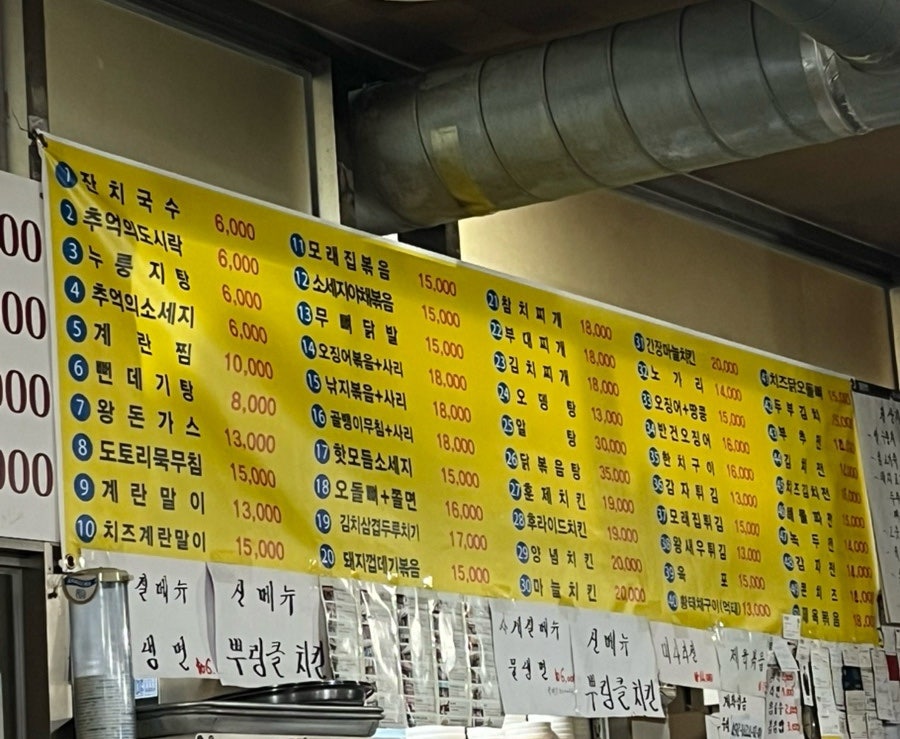 1 잔치국수 6,000
2 추억의도시락 6,000
3 누룽지탕 6,000
4 추억의소세지 6,000
5 계란찜 10,000
6 뻔데기탕 8,000
7 왕돈가스 13,000
8 도토리묵무침 15,000
9 계란말이 13,000
10 치즈계란말이 15,000
11 모래집볶음 15,000
12 소세지야채볶음 15,000
13 무뼈닭발 15,000
14 오징어볶음+사리 18,000
15 낚지볶음+사리 18,000
16 골뱅이무침+사리 18,000
17 핫모듬소세지 15,000
18 오돌뼈+쫄면 16,000
19 김치삼겹두루치기 17,000
20 돼지껍데기볶음 15,000
21 참치찌개 18,000
22 부대찌개 18,000
23 김치찌개 18,000
24 오뎅탕 13,000
25 알탕 30,000
26 닭볶음탕 35,000
27 훈제치킨 19,000
28 후라이드치킨 19,000
29 양념치킨 20,000
30 마늘치킨 20,000
31 간장마늘치킨 20,000
32 노가리 14,000
33 오징어+땅콩 15,000
34 반건오징어 16,000
35 한치구이 16,000
36 감자튀김 13,000
37 모래집튀김 15,000
38 왕새우튀김 13,000
39 육포 15,000
40 황태채구이(먹태) 13,000
치즈닭오돌뼈 15,000
두부김치
부추전
44 김치전
45 치즈김치전
해물파전
47 녹두전
48 감자전
콘치즈
제육볶음
00
00
000
000
신메뉴
뿌링클 치킨
물냉면
신메뉴
뿌링클 치킨